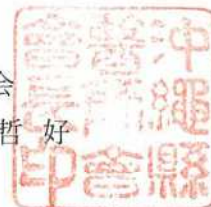 会
哲 好
沖繩縣
醫師會
會長印